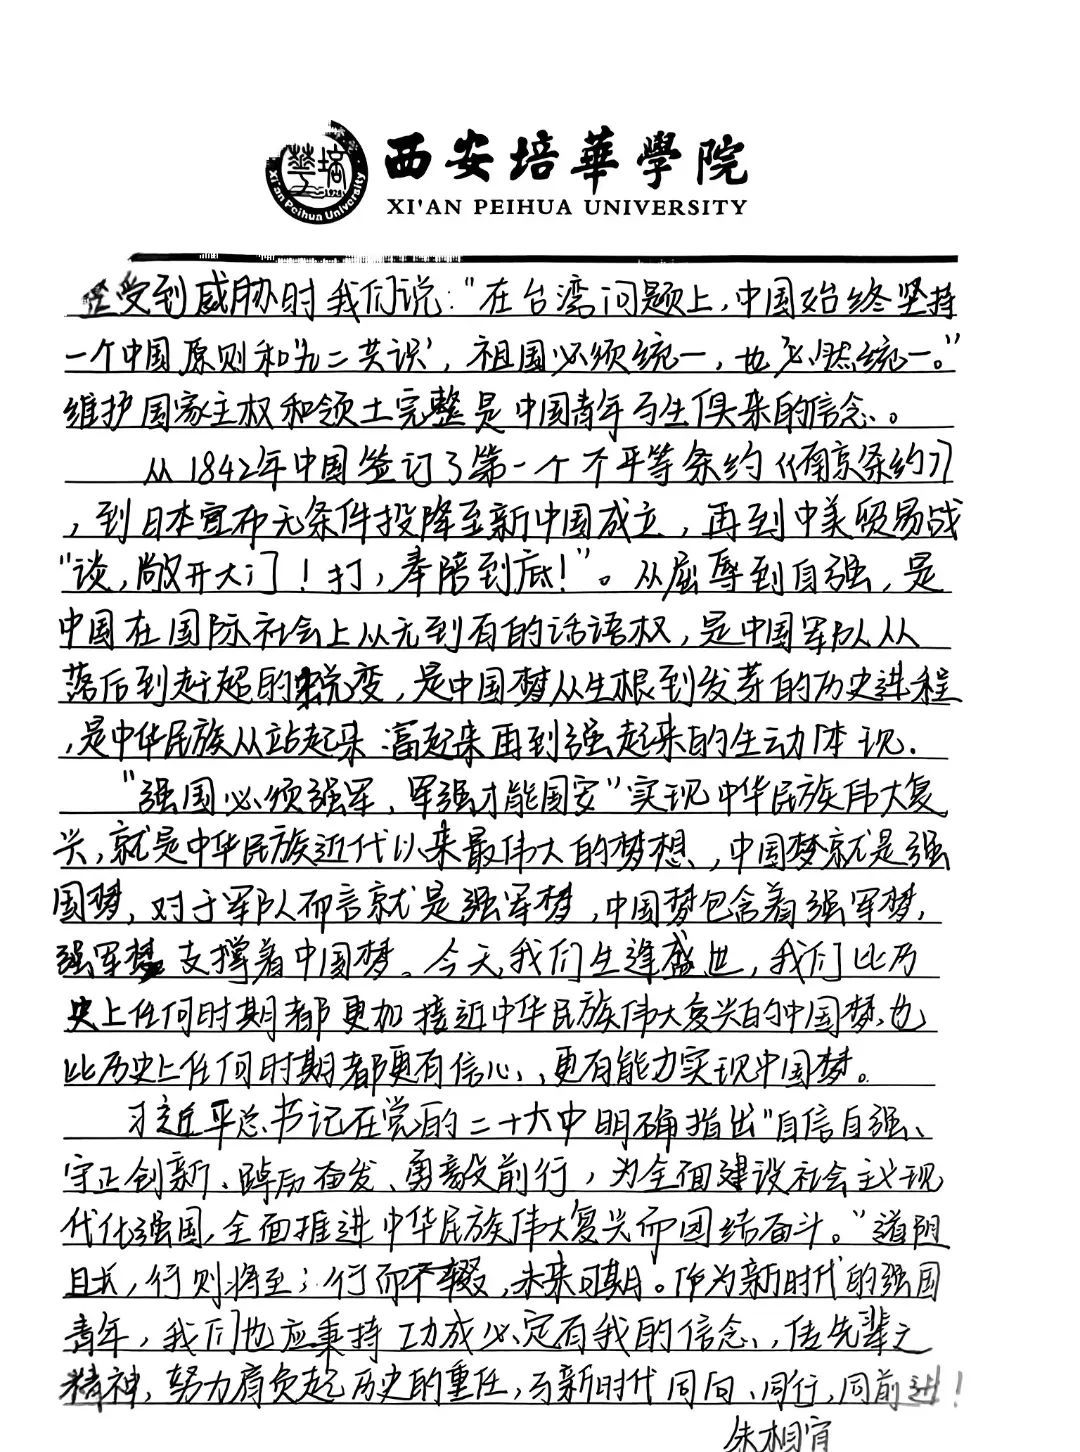 西安培華學院
XI'AN PEIHUA UNIVERSITY
華培
1928
Xi'an Peihua University
受到威胁时我们说：“在台湾问题上，中国始终坚持
一个中国原则和‘九二共识’，祖国必须统一，也必然统一。”
维护国家主权和领土完整是中国青年与生俱来的信念。
从1842年中国签订了第一个不平等条约《南京条约》
，到日本宣布无条件投降至新中国成立，再到中美贸易战
“谈，敞开大门！打，奉陪到底！”。从屈辱到自强，是
中国在国际社会上从无到有的话语权，是中国军队从
落后到赶超的蜕变，是中国梦从生根到发芽的历史进程
，是中华民族从站起来 富起来再到强起来的生动体现.
“强国必须强军，军强才能国安”实现中华民族伟大复
兴，就是中华民族近代以来最伟大的梦想，中国梦就是强
国梦，对于军队而言就是强军梦，中国梦包含着强军梦，
强军梦支撑着中国梦。今天，我们生逢盛世，我们比历
史上任何时期都更加接近中华民族伟大复兴的中国梦，也
比历史上任何时期都更有信心，更有能力实现中国梦。
习近平总书记在党的二十大中明确指出“自信自强、
守正创新、踔厉奋发、勇毅前行，为全面建设社会主义现
代化强国，全面推进中华民族伟大复兴而团结奋斗。”道阻
且长，行则将至；行而不辍，未来可期。作为新时代的强国
青年，我们也应秉持功成必定有我的信念，传先辈之
精神，努力肩负起历史的重任，与新时代同向、同行，同前进！
朱相宵